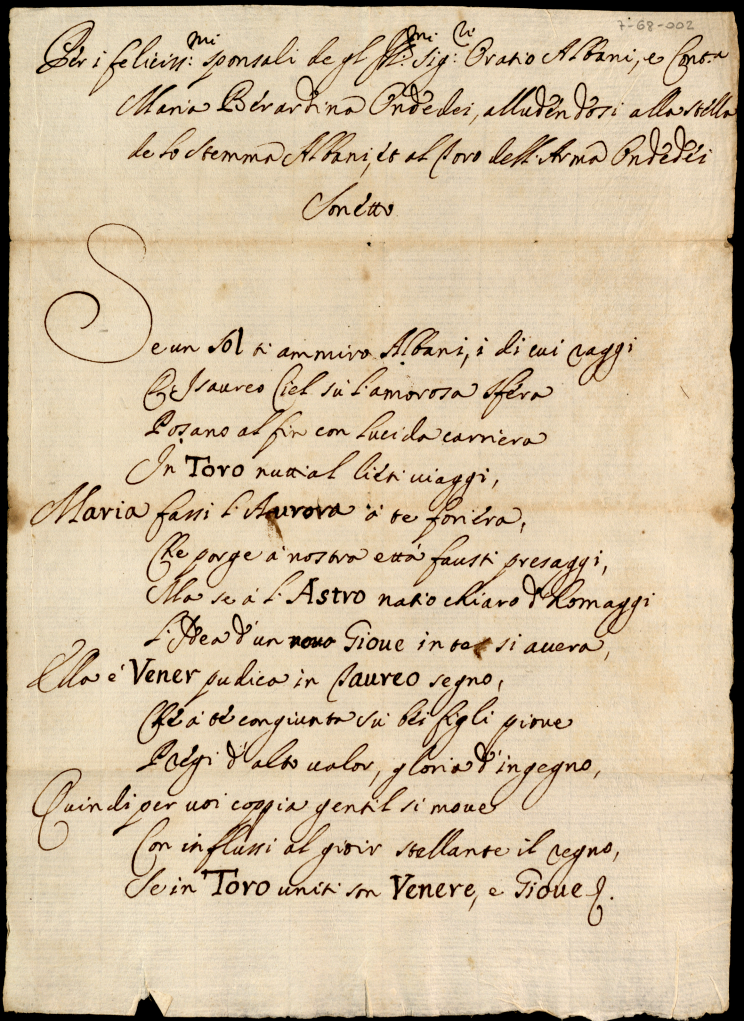 7-68-002
Per i feliciss:mi sponsali de gl' Ill:mi Sig:ri Oratio Albani, e Cont:a
Maria Berardina Ondedei, alludendosi alla stella
de lo stemma Albani, et al Toro dell'Arma Ondedei
Sonetto
Se un Sol ti ammiro Albani, i di cui raggi
Ch' Isaureo Ciel su l'amorosa sfera
Posano al fin con lucida carriera
In Toro nuttial lieti viaggi,
Maria fassi l'Aurora à te foriera,
Che porge à nostra ettà fausti presaggi,
Ma se à l'Astro natio chiaro d'homaggi
L'Idea d'un novo Giove in te si avera,
Ella è Vener pudica in Taureo segno,
Che à te congiunta su bei figli piove
Pregi d'alto valor, gloria d'ingegno,
Quindi per voi coppia gentil si move
Con influssi al gioir stellante il regno,
Se in Toro uniti son Venere, e Giove.